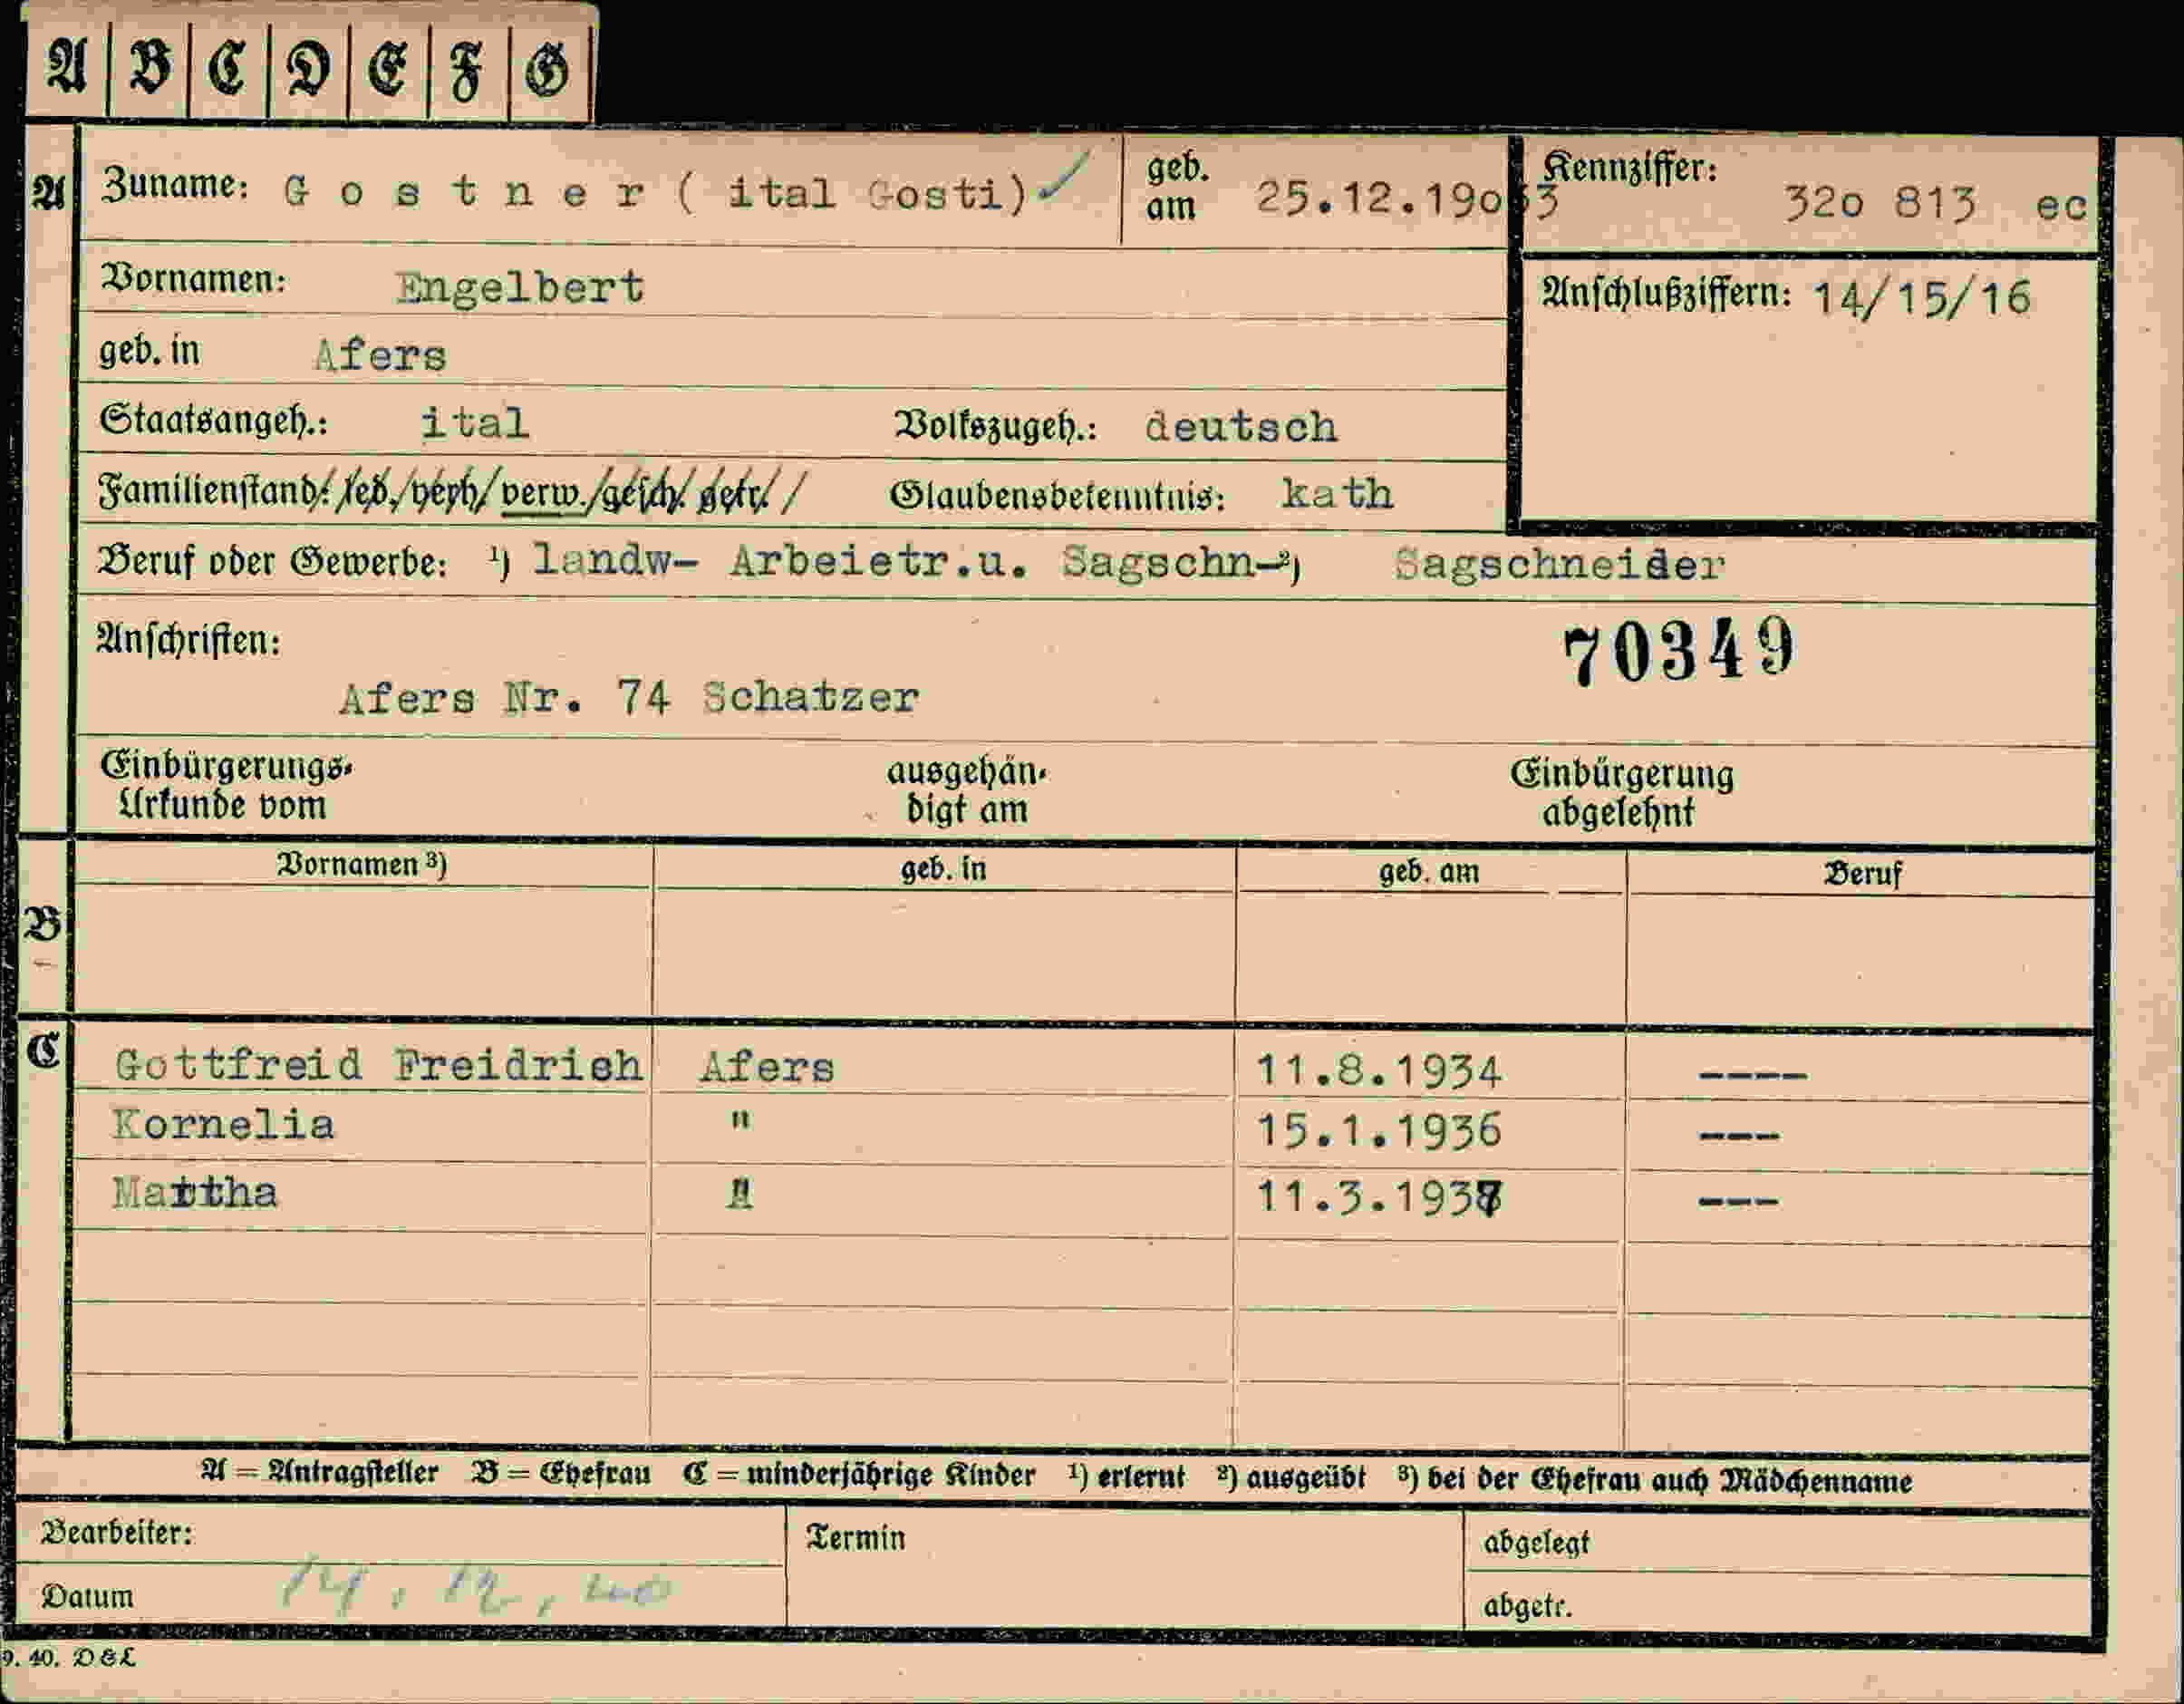 A B C D E F G
A Zuname: G o s t n e r ( ital Gosti) ✓ geb. am 25.12.19o3 Kennziffer: 32o 813 ec
Vornamen: Engelbert Anschlußziffern: 14/15/16
geb. in Afers
Staatsangeh.: ital Volkszugeh.: deutsch
Familienstand: led./verh/verw./gesch. getr. Glaubensbekenntnis: kath
Beruf oder Gewerbe: ¹) landw- Arbeietr.u. Sagschn- ²) Sagschneider
Anschriften: 70349
Afers Nr. 74 Schatzer
Einbürgerungs- ausgehän- Einbürgerung
Urkunde vom digt am abgelehnt
Vornamen ³) geb. in geb. am Beruf
B
C Gottfreid Freidrich Afers 11.8.1934 ----
Kornelia " 15.1.1936 ---
Martha " 11.3.1937 ---
A = Antragsteller B = Ehefrau C = minderjährige Kinder ¹) erlernt ²) ausgeübt ³) bei der Ehefrau auch Mädchenname
Bearbeiter: Termin abgelegt
Datum 14. 12. 40 abgetr.
9. 40. D&L